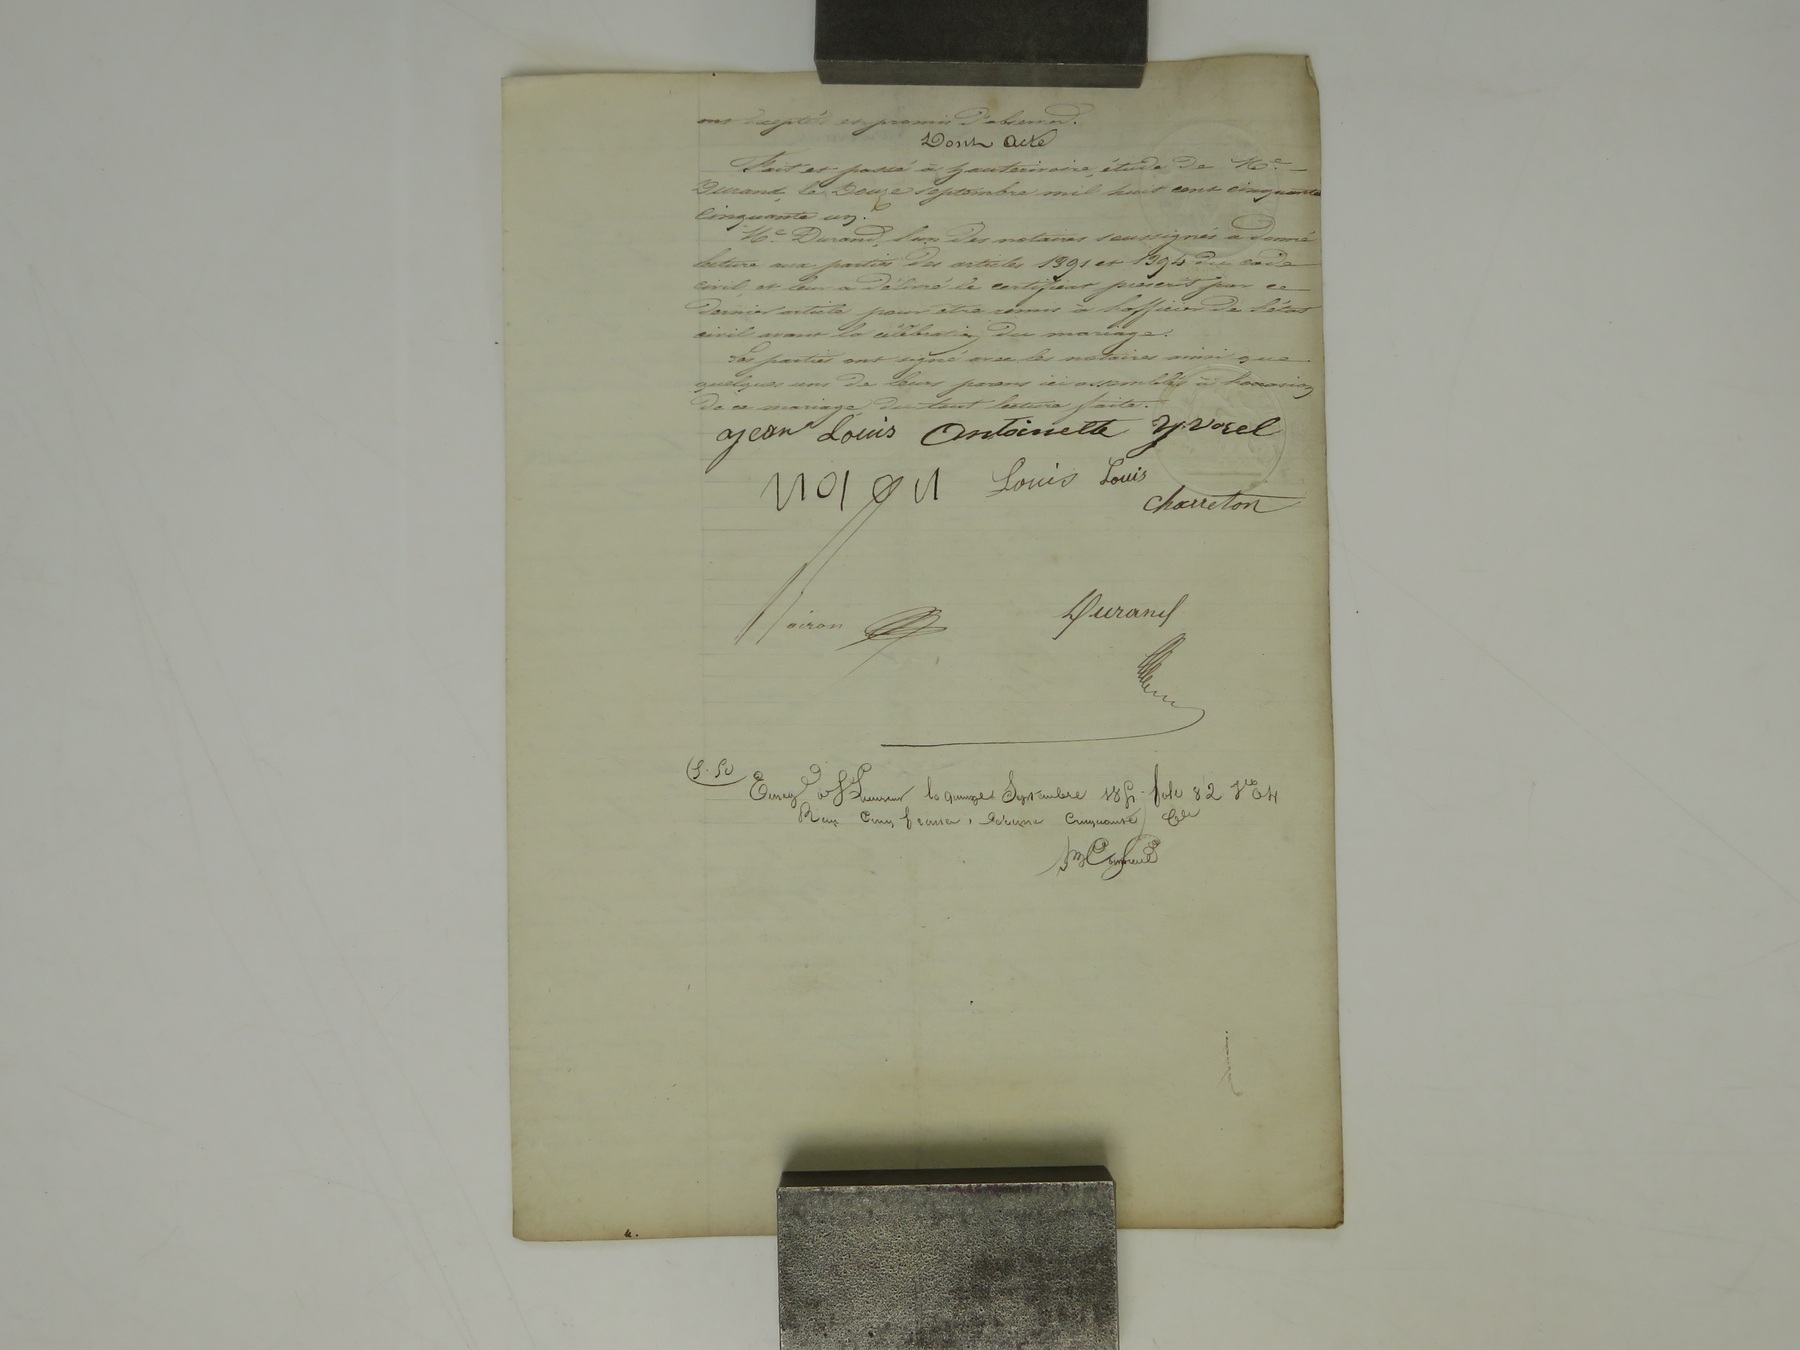 ont accepté et promis d'observer.
Dont Acte
Fait et passé à hauterivoire, étude de Me
Durand, le Douze Septembre mil huit cent cinquante
Cinquante un.
Me Durand, l'un des notaires soussignés a donné
lecture aux parties des articles 1391 et 1394 du code
civil, et leur a délivré le certificat prescrit par ce
dernier article pour etre remis à l'officier de l'état
civil avant la célébration du mariage.
Les parties ont signé avec les notaires ainsi que
quelques uns de leurs parens ici assemblés à l'occasion
de ce mariage, du tout lecture faite.
Jean Louis Antoinette
Louis Louis
Charreton
Durand
5-50
Enreg à St Laurent le quinze Septembre 1851 folio 82
Reçu Cinq francs, décime Cinquante